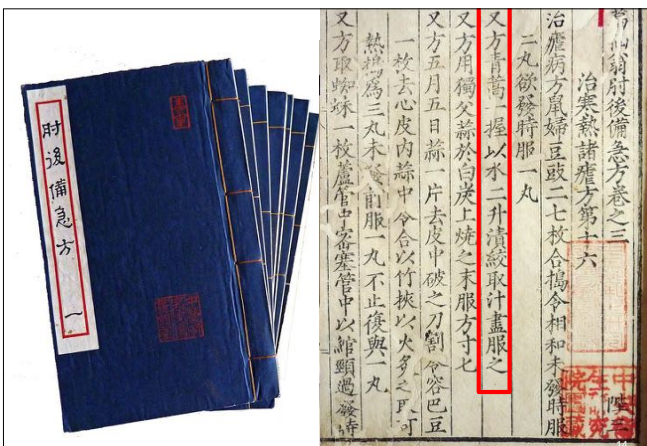 肘後備急方 一
葛仙翁肘後備急方卷之三
治寒熱諸瘧方第十六
治瘧病方鼠婦豆豉二七枚合搗令相和未發時服
二丸欲發時服一丸
又方青蒿一握以水二升漬絞取汁盡服之
又方用獨父蒜於白炭上燒之末服方寸七
又方五月五日蒜一片去皮中破之刀割令容巴豆
一枚去心皮內蒜中令合以竹挾以火炙之取可
熱搗為三丸未發前服一丸不止復與一丸
又方取蜘蛛一枚蘆管中密塞管中以綰頸過發時